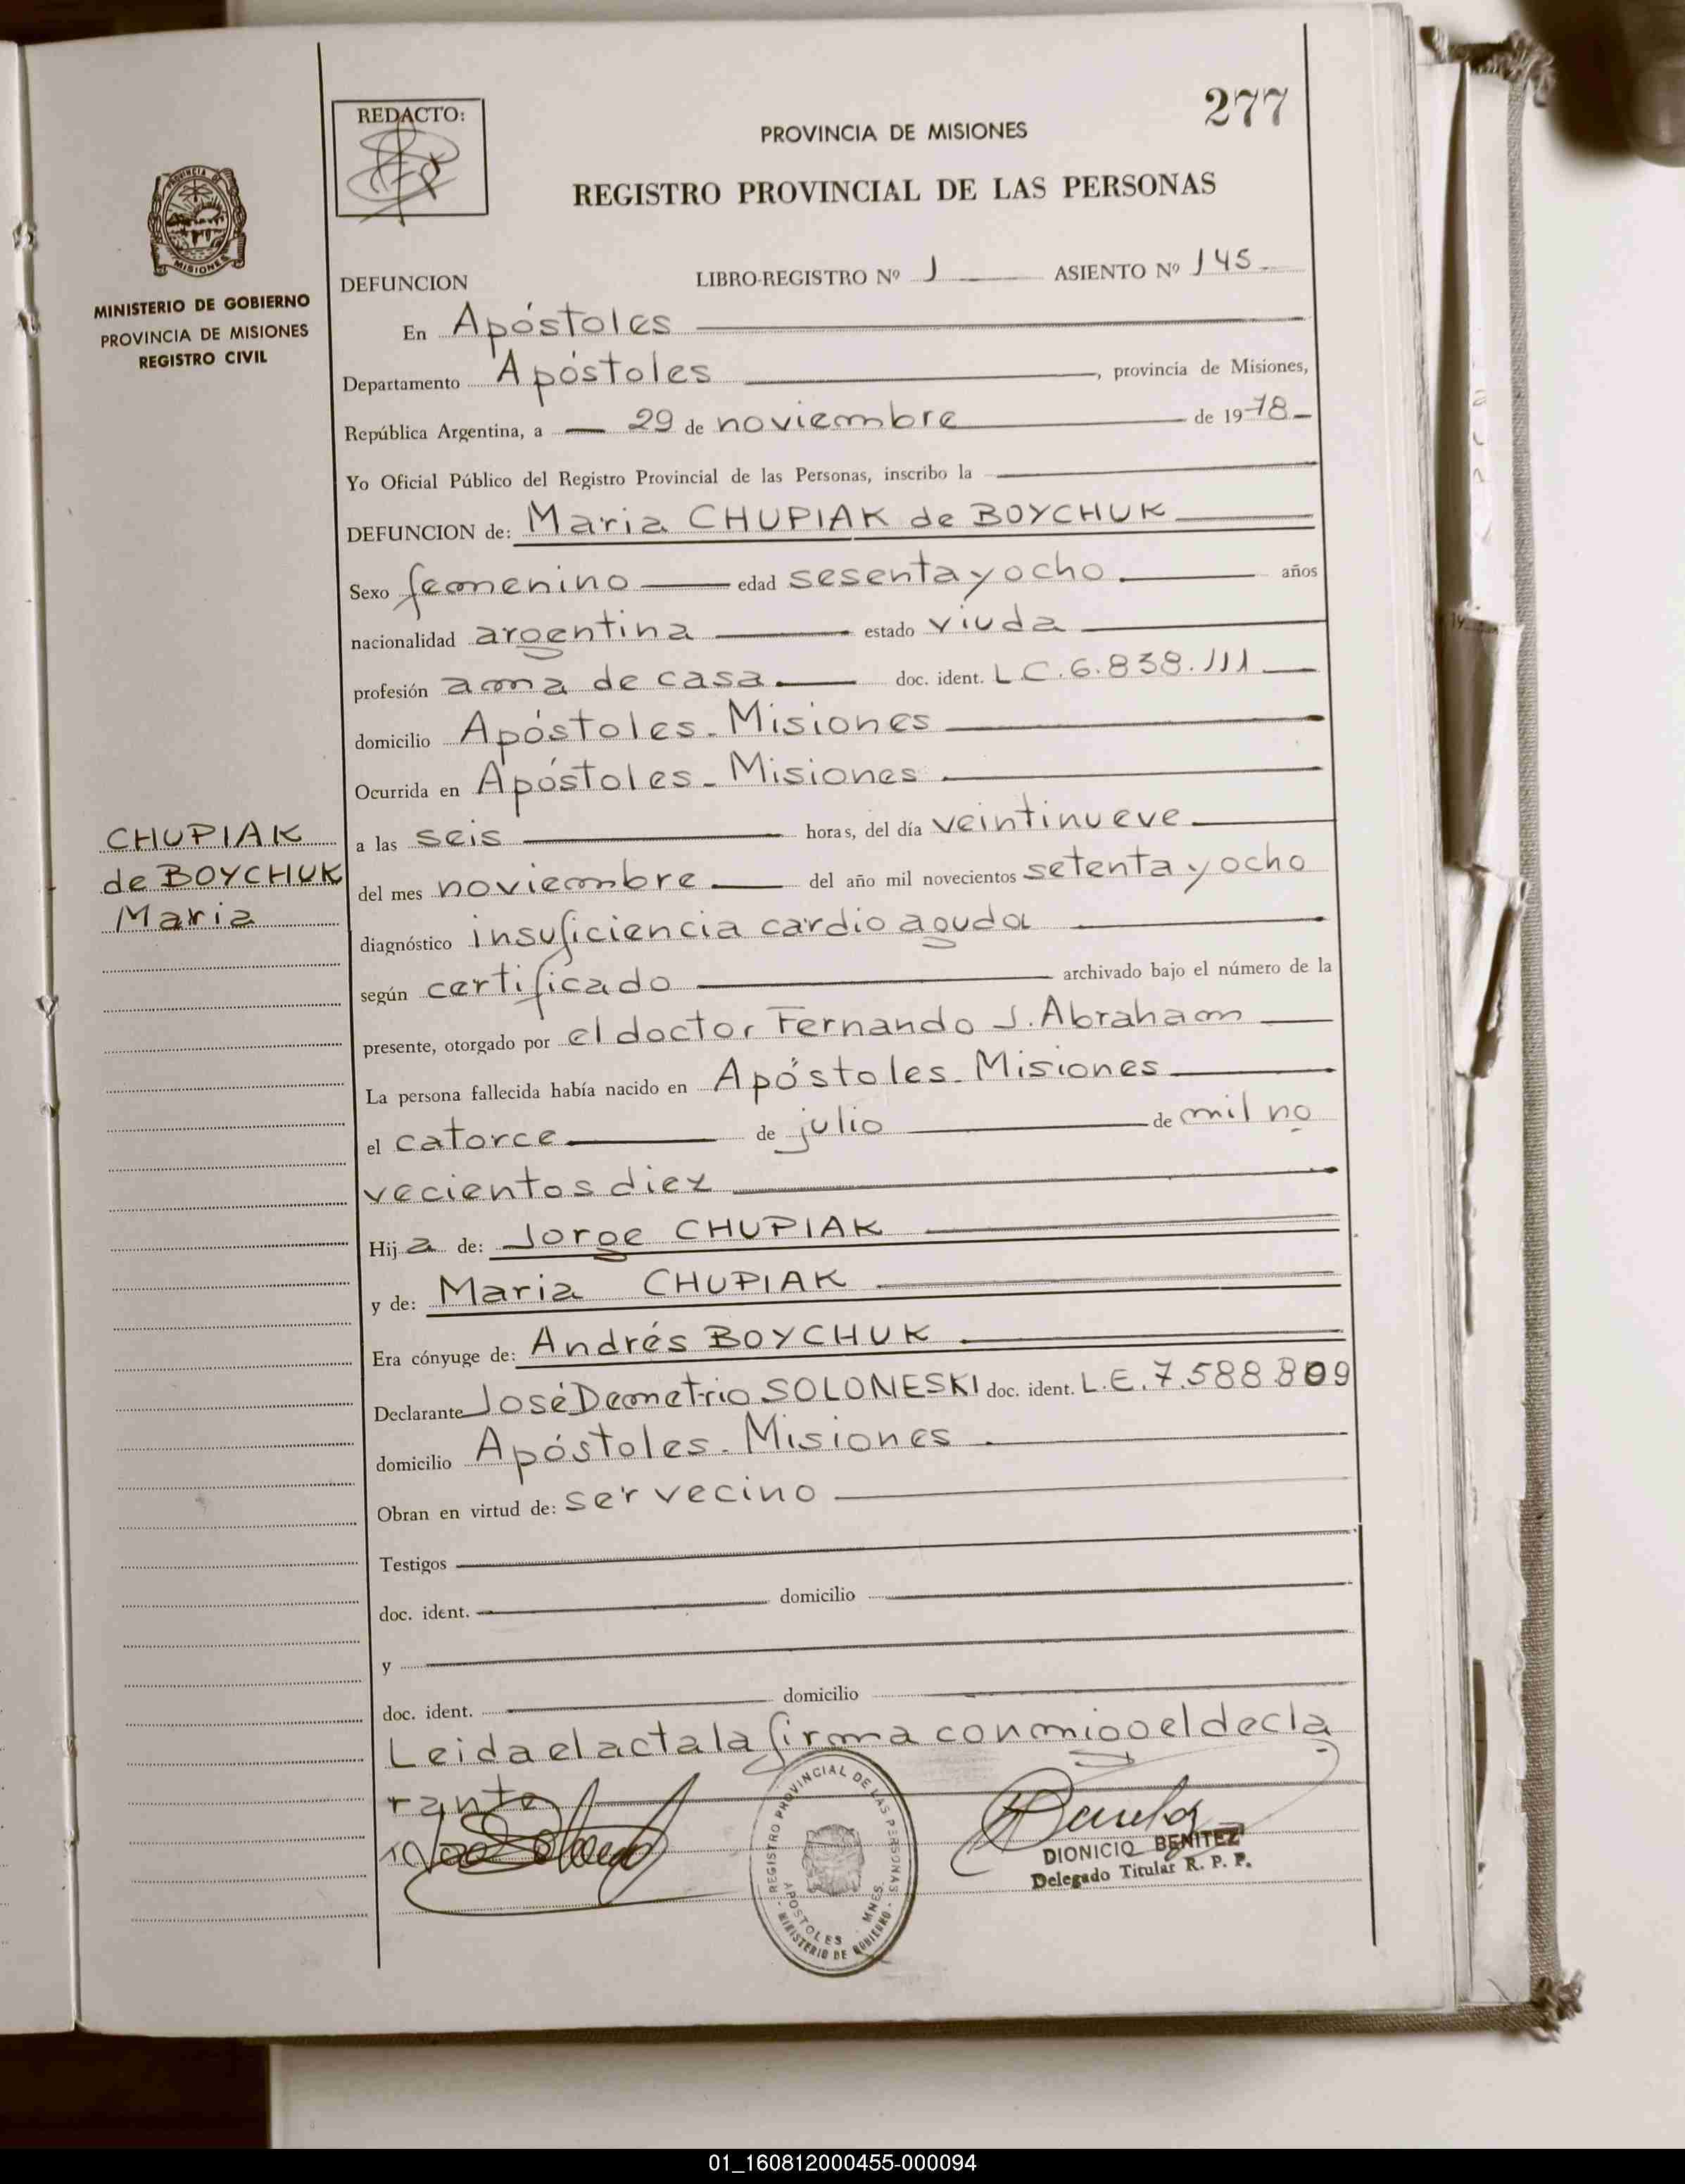 277
REDACTO:
PROVINCIA DE MISIONES
REGISTRO PROVINCIAL DE LAS PERSONAS
PROVINCIA DE
MISIONES
MINISTERIO DE GOBIERNO
PROVINCIA DE MISIONES
REGISTRO CIVIL
DEFUNCION LIBRO-REGISTRO Nº 1 ASIENTO Nº 145
En Apóstoles
Departamento Apóstoles, provincia de Misiones,
República Argentina, a 29 de noviembre de 1978
Yo Oficial Público del Registro Provincial de las Personas, inscribo la
DEFUNCION de: Maria CHUPIAK de BOYCHUK
Sexo femenino edad sesenta y ocho años
nacionalidad argentina estado viuda
profesión ama de casa doc. ident. L C. 6.838.111
domicilio Apóstoles - Misiones
Ocurrida en Apóstoles - Misiones
a las seis horas, del día veintinueve
del mes noviembre del año mil novecientos setenta y ocho
CHUPIAK
de BOYCHUK
Maria
diagnóstico insuficiencia cardio aguda
según certificado archivado bajo el número de la
presente, otorgado por el doctor Fernando J. Abraham
La persona fallecida había nacido en Apóstoles - Misiones
el catorce de julio de mil no
vecientos diez
Hij a de: Jorge CHUPIAK
y de: Maria CHUPIAK
Era cónyuge de: Andrés BOYCHUK
Declarante José Demetrio SOLONESKI doc. ident. L.E. 7.588.809
domicilio Apóstoles - Misiones
Obran en virtud de: ser vecino
Testigos
doc. ident. domicilio
y
doc. ident. domicilio
Leida el acta la firma conmigo el decla
rante
REGISTRO PROVINCIAL DE LAS PERSONAS
APOSTOLES - MNES.
MINISTERIO DE GOBIERNO
DIONICIO BENITEZ
Delegado Titular R. P. P.
01_160812000455-000094